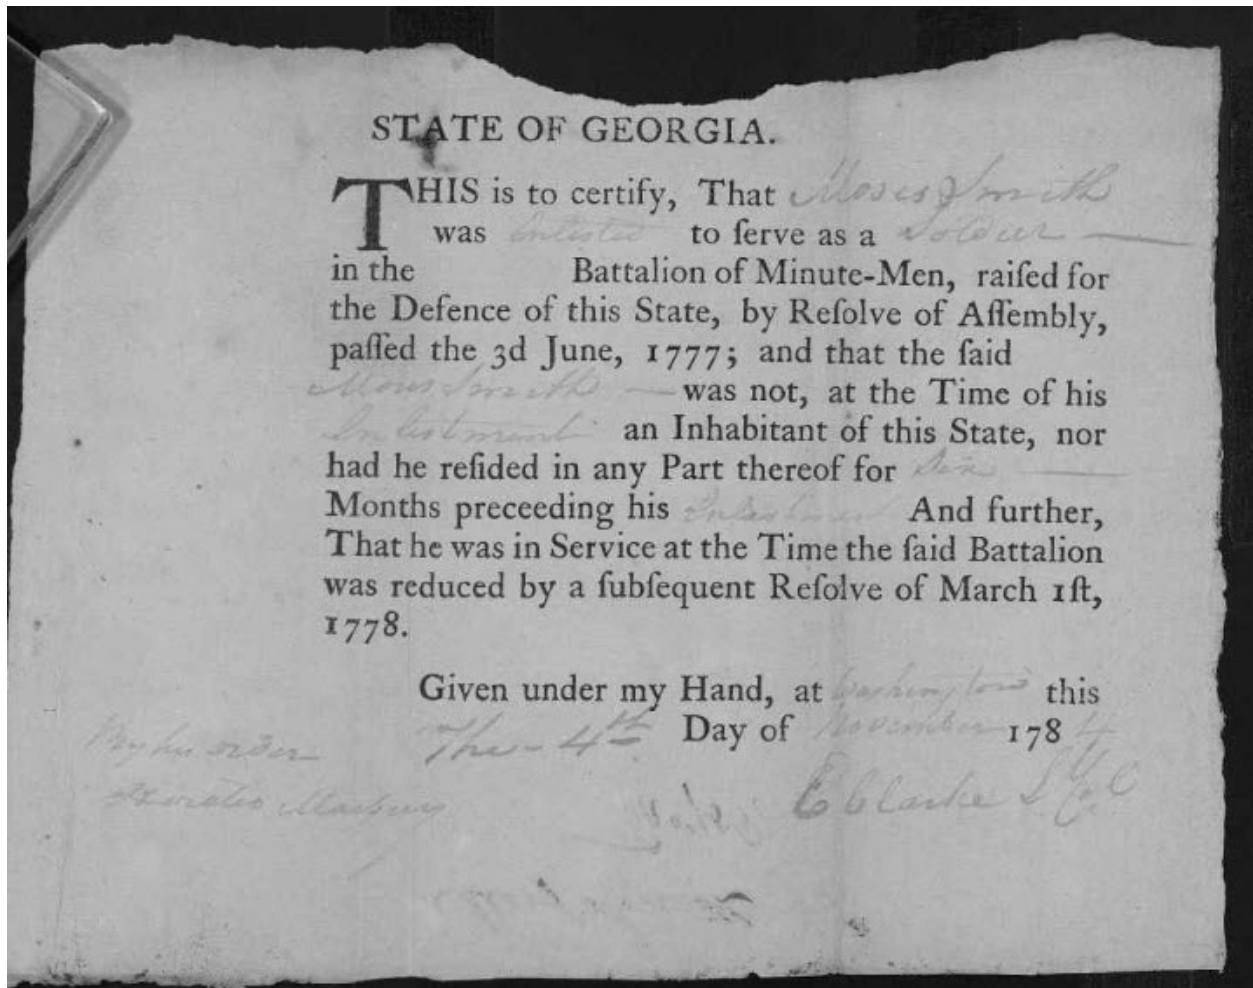 STATE OF GEORGIA.
THIS is to certify, That Moses Smith
was Enlisted to ſerve as a Soldier —
in the Battalion of Minute-Men, raiſed for
the Defence of this State, by Reſolve of Aſſembly,
paſſed the 3d June, 1777; and that the ſaid
Moses Smith — was not, at the Time of his
Enlistment an Inhabitant of this State, nor
had he reſided in any Part thereof for Six —
Months preceeding his Enlistment And further,
That he was in Service at the Time the ſaid Battalion
was reduced by a ſubſequent Reſolve of March 1ſt,
1778.
Given under my Hand, at Washington this
The 4th Day of November 1784
By his order
Horatio Marbury
E Clarke